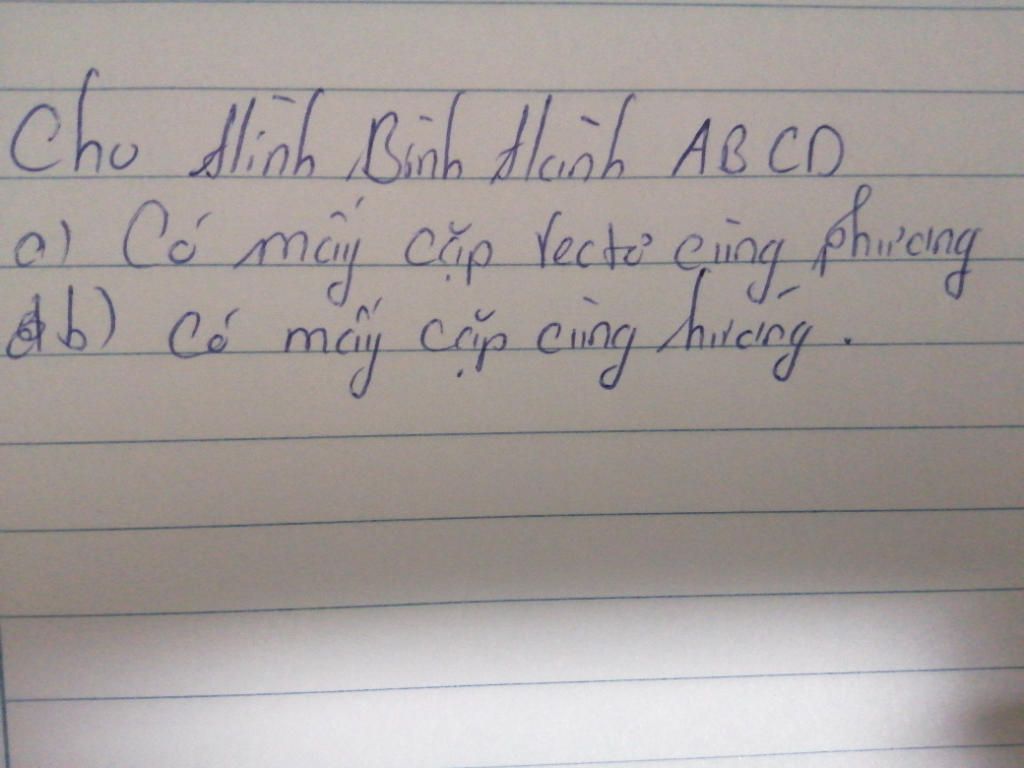 Cho Hình Bình Hành ABCD
a) Có mấy cặp vectơ cùng phương
b) Có mấy cặp cùng hướng.